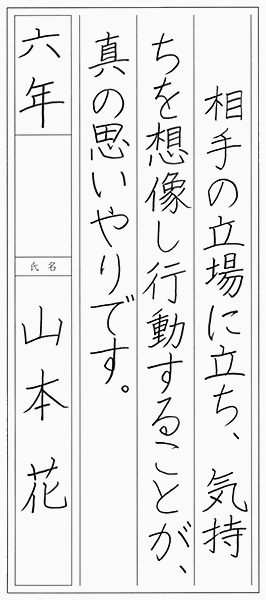 相手の立場に立ち、気持
ちを想像し行動することが、
真の思いやりです。
六年
氏名
山本花